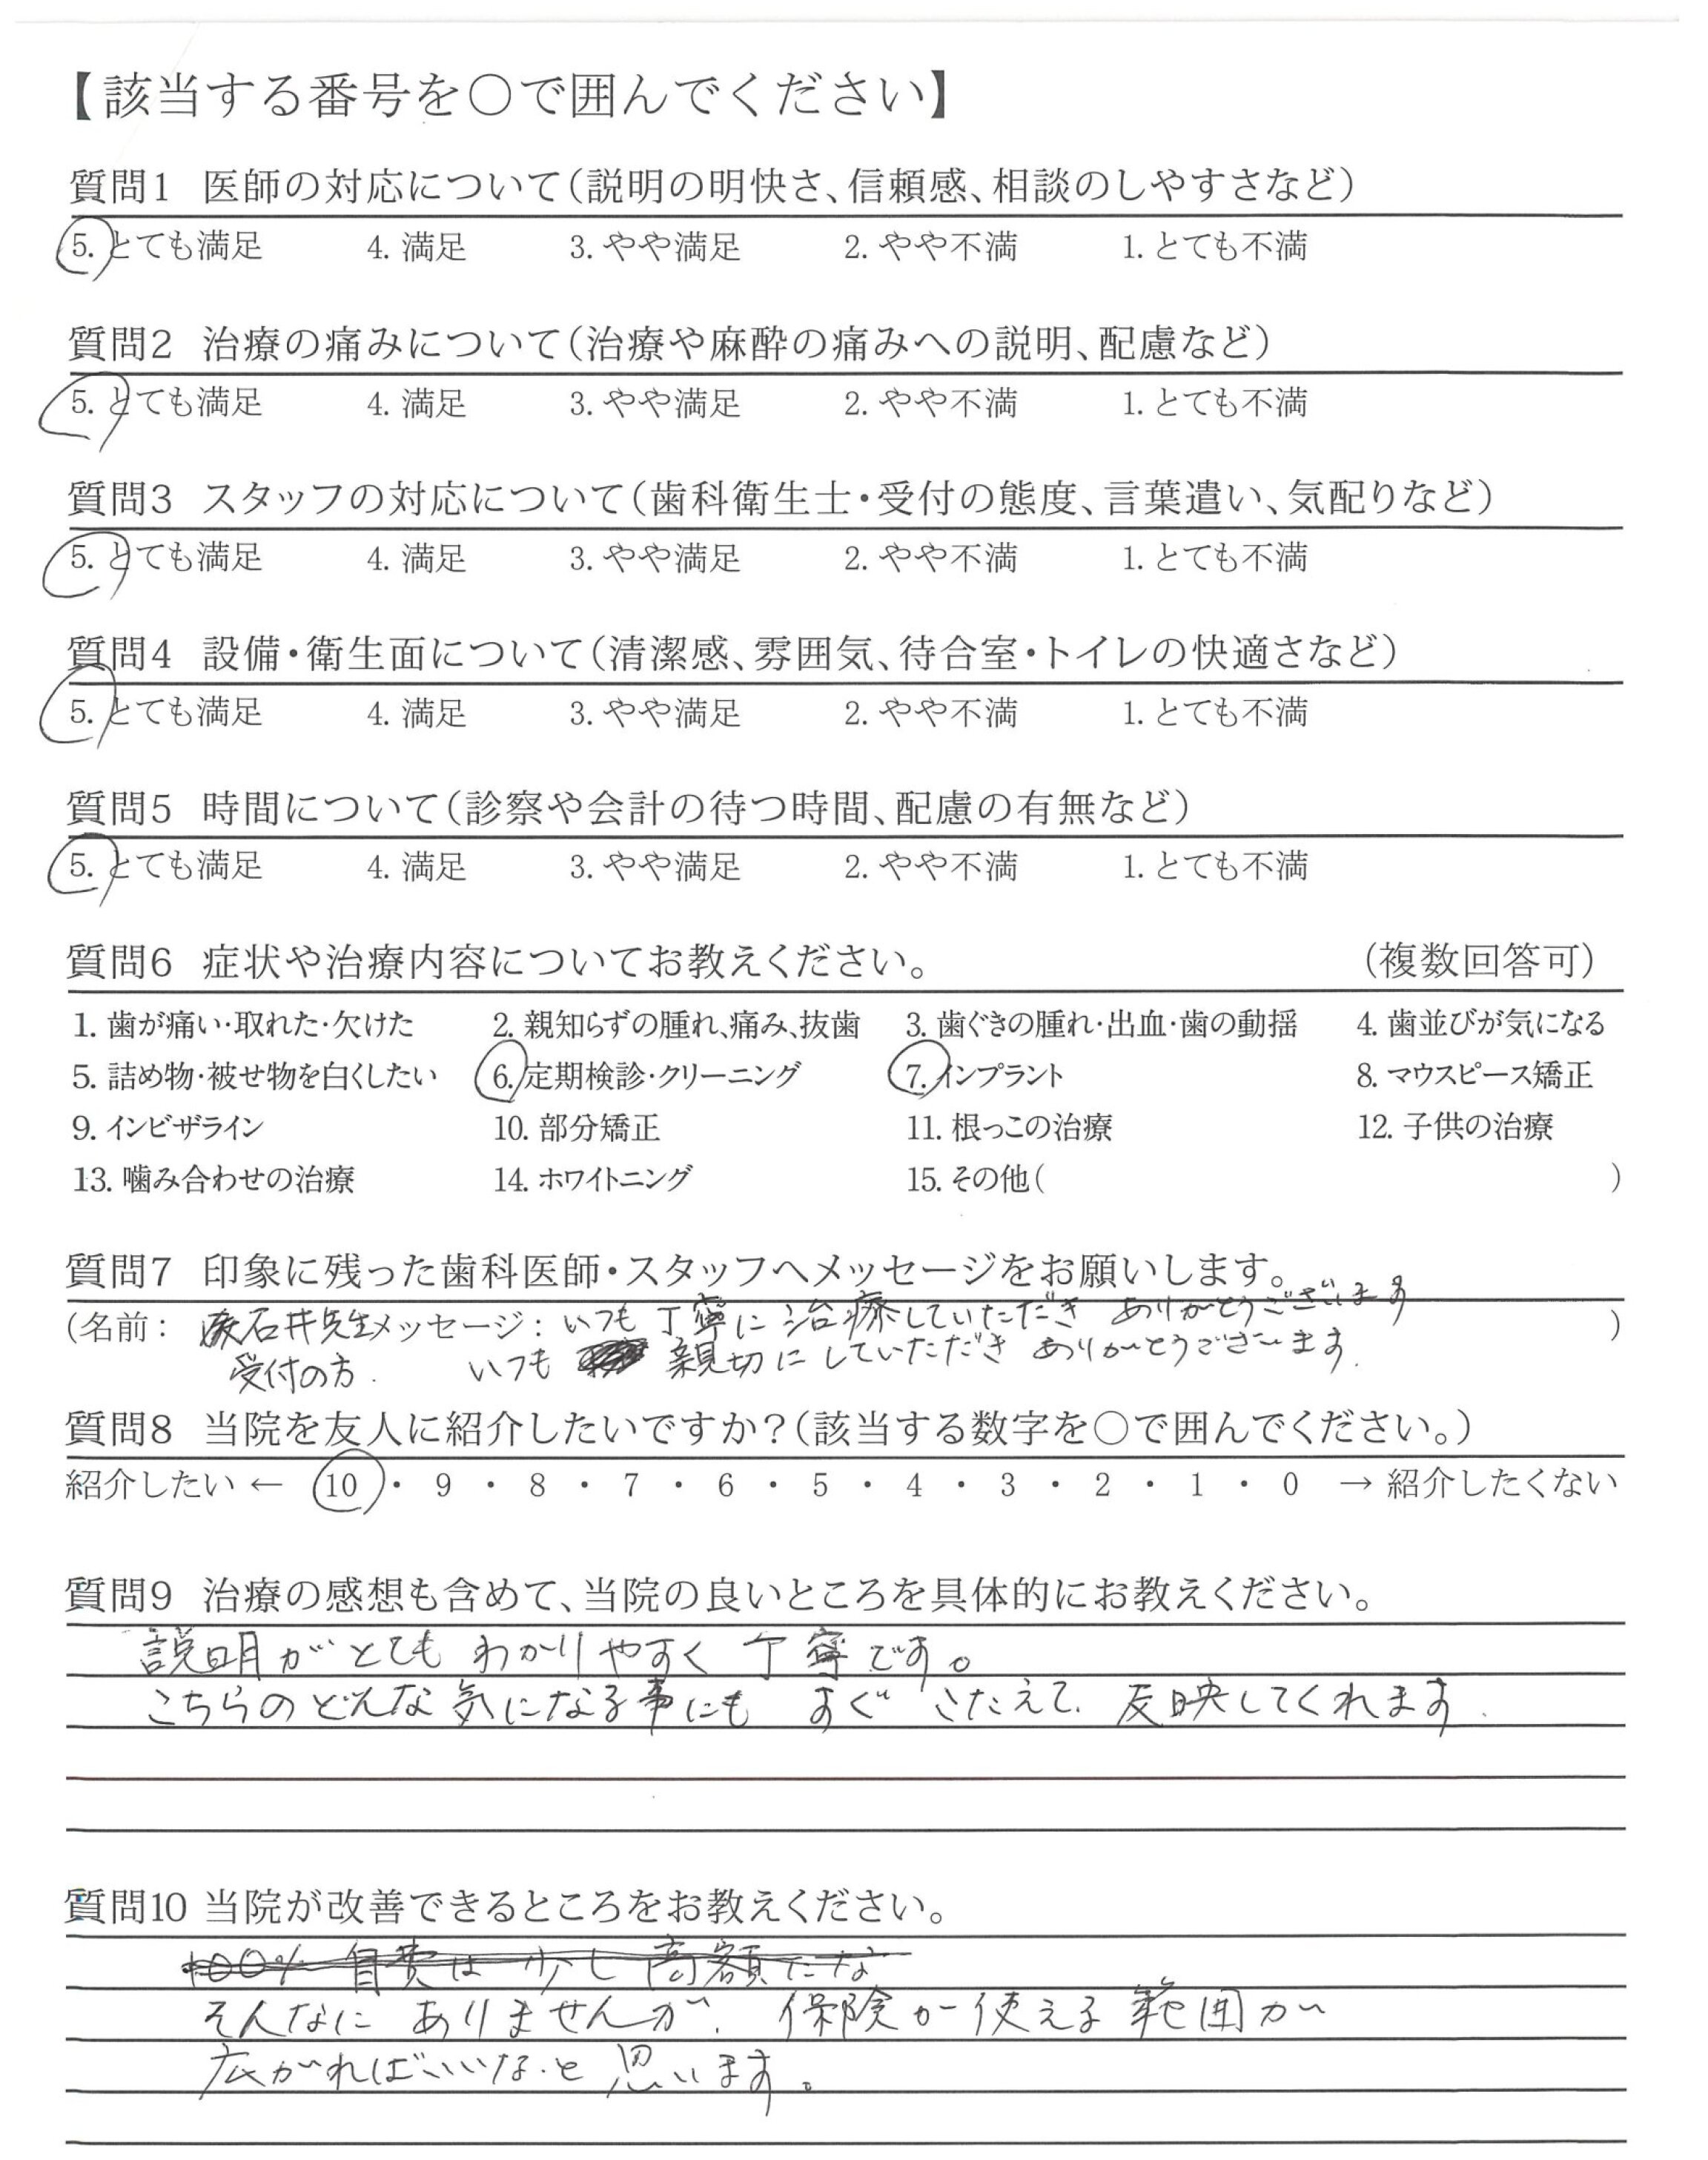 【該当する番号を○で囲んでください】
質問1 医師の対応について（説明の明快さ、信頼感、相談のしやすさなど）
5. とても満足 4. 満足 3. やや満足 2. やや不満 1. とても不満
質問2 治療の痛みについて（治療や麻酔の痛みへの説明、配慮など）
5. とても満足 4. 満足 3. やや満足 2. やや不満 1. とても不満
質問3 スタッフの対応について（歯科衛生士・受付の態度、言葉遣い、気配りなど）
5. とても満足 4. 満足 3. やや満足 2. やや不満 1. とても不満
質問4 設備・衛生面について（清潔感、雰囲気、待合室・トイレの快適さなど）
5. とても満足 4. 満足 3. やや満足 2. やや不満 1. とても不満
質問5 時間について（診察や会計の待つ時間、配慮の有無など）
5. とても満足 4. 満足 3. やや満足 2. やや不満 1. とても不満
質問6 症状や治療内容についてお教えください。 （複数回答可）
1. 歯が痛い・取れた・欠けた 2. 親知らずの腫れ、痛み、抜歯 3. 歯ぐきの腫れ・出血・歯の動揺 4. 歯並びが気になる
5. 詰め物・被せ物を白くしたい 6. 定期検診・クリーニング 7. インプラント 8. マウスピース矯正
9. インビザライン 10. 部分矯正 11. 根っこの治療 12. 子供の治療
13. 噛み合わせの治療 14. ホワイトニング 15. その他（ ）
質問7 印象に残った歯科医師・スタッフへメッセージをお願いします。
（名前： 石井先生 メッセージ： いつも 丁寧に 治療していただき ありがとうございます ）
受付の方. いつも 親切に していただき ありがとうございます.
質問8 当院を友人に紹介したいですか？（該当する数字を○で囲んでください。）
紹介したい ← 10 ・ 9 ・ 8 ・ 7 ・ 6 ・ 5 ・ 4 ・ 3 ・ 2 ・ 1 ・ 0 → 紹介したくない
質問9 治療の感想も含めて、当院の良いところを具体的にお教えください。
説明が とても わかりやすく 丁寧です。
こちらの どんな 気になる事にも すぐ こたえて. 反映してくれます.
質問10 当院が改善できるところをお教えください。
100% 自費は 少し 高額にな
そんなに ありませんが. 保険が 使える 範囲が
広がればいいな.と 思います。